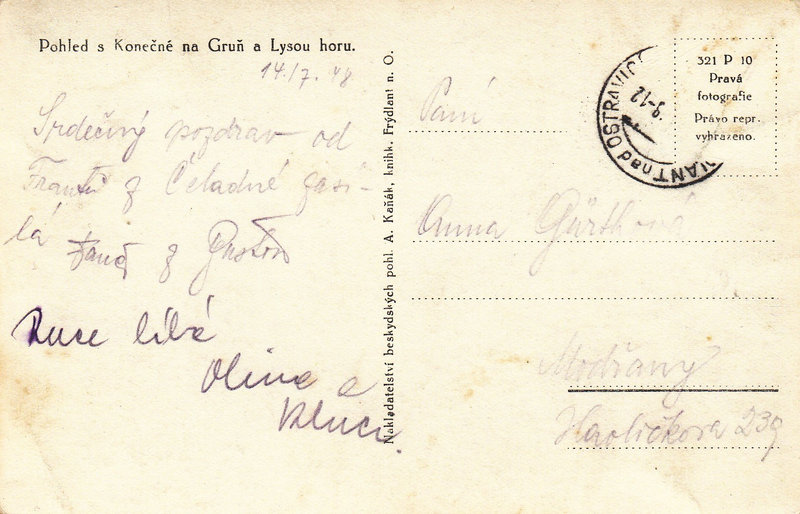 Pohled s Konečné na Gruň a Lysou horu.
14./7. 48
Srdečný pozdrav od
z Čeladné zasí-
lá z
Ruce líbá
Olina a
kluci.
Nakladatelství beskydských pohl. A. Kaňák, knihk. Frýdlant n. O.
321 P 10
Pravá
fotografie
Právo repr.
vyhrazeno.
nad OSTRAVICÍ
9-12
Paní
Anna Gürthová
Modřany
Havlíčkova 239